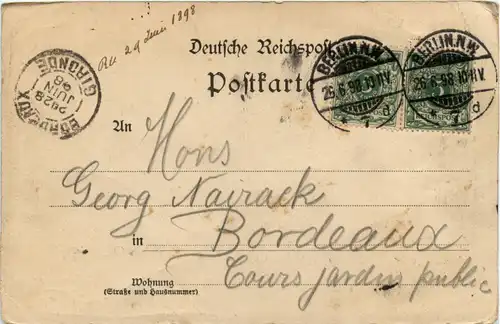 Au 29 Juin 1898
Deutsche Reichspost
Postkarte
BERLIN, N.W.
26.6.98.10-11V.
7 d
BERLIN, N.W.
26.6.98.10-11V.
7 d
BORDEAUX
GIRONDE
2E 28
JUIN
98
An
Mons
Georg Nairack
in Bordeaux
Cours jardin public
Wohnung
(Straße und Hausnummer)